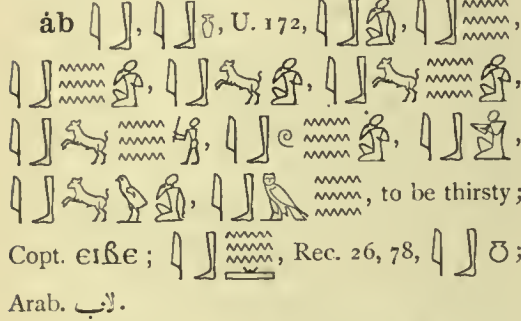 ȧb 𓇋𓃀, 𓇋𓃀𓏊, U. 172, 𓇋𓃀𓀁, 𓇋𓃀𓈗,
𓇋𓃀𓈗𓀁, 𓇋𓃀𓃙𓀁, 𓇋𓃀𓃙𓈗𓀁,
𓇋𓃀𓃙𓈗𓀜, 𓇋𓃀𓏲𓈗𓀁, 𓇋𓃀
𓇋𓃀𓃙𓅱𓀁, 𓇋𓃀𓅓𓈗, to be thirsty;
Copt. ⲉⲓⲃⲉ; 𓇋𓃀𓈗, Rec. 26, 78, 𓇋𓃀𓏌;
Arab. لاب.